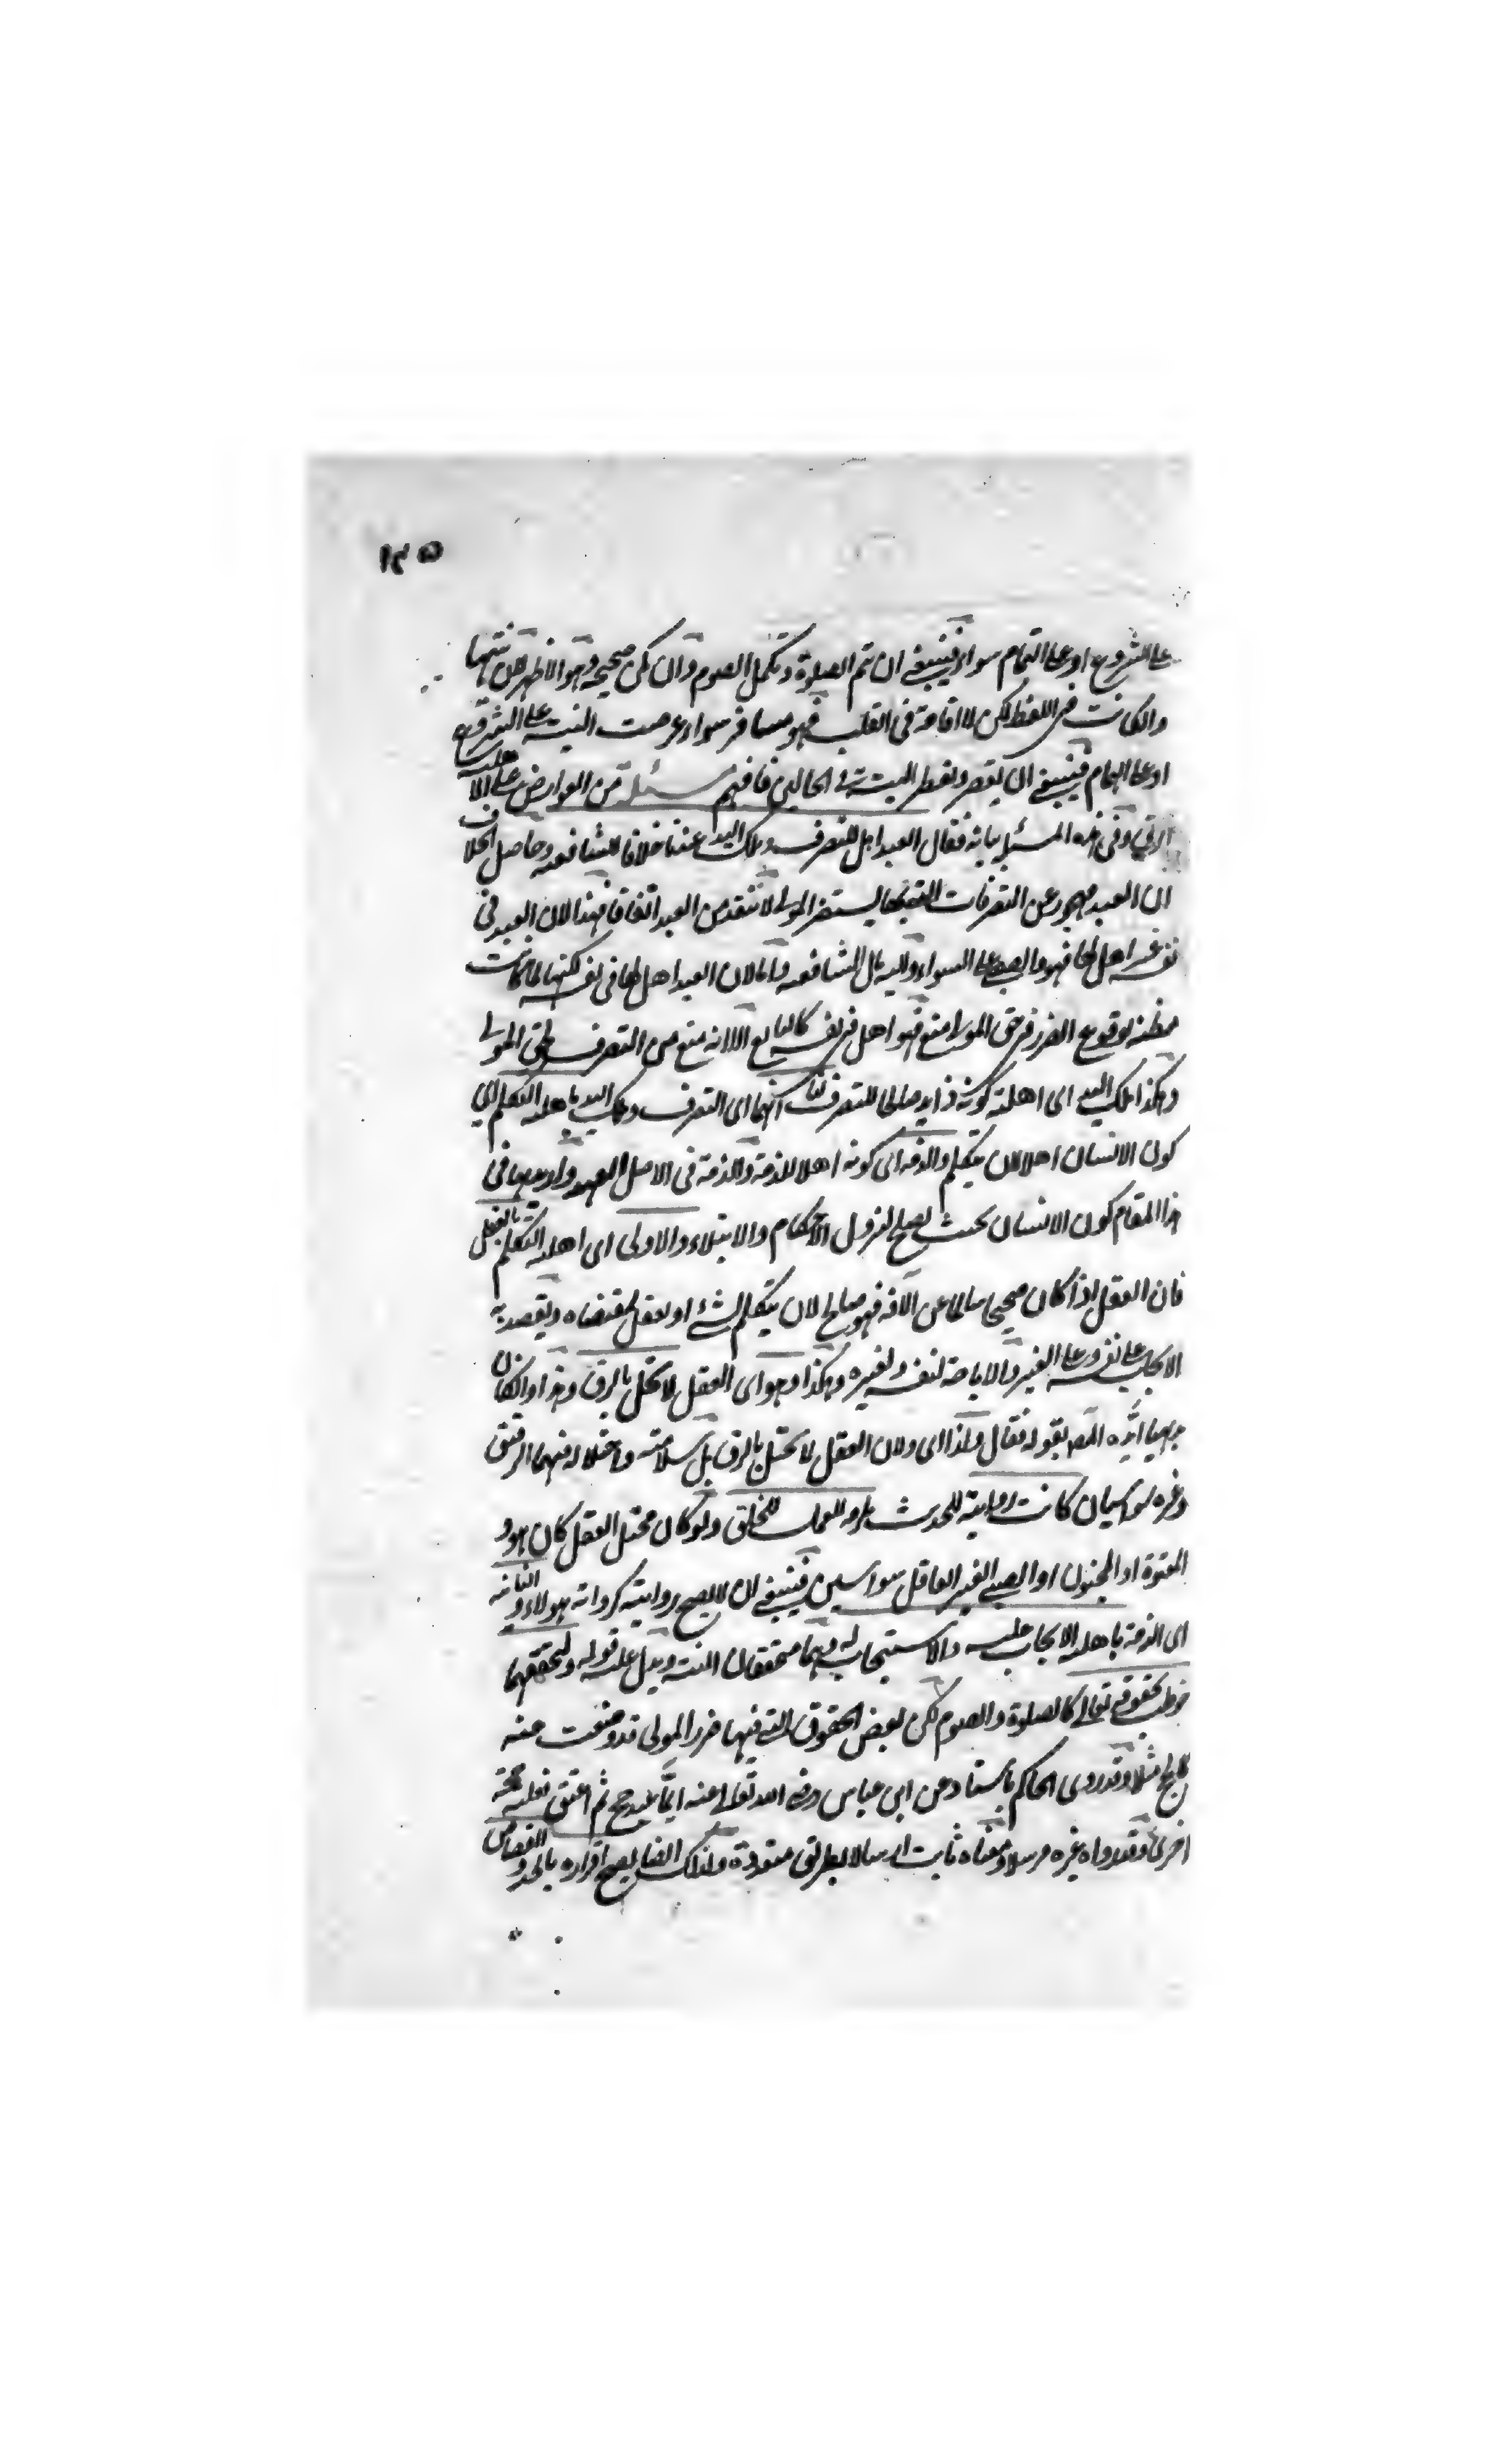 ١٢٥
على الشروع او على التمام سواء فينبغى ان تتم الصلوة وتكمل الصوم وان لم يكن صحيحة وهو الاظهر
والكانت فى اللفظ لكن لا اقامة فى القلب فهو مسافر سواء عرضت النية على الشروع
او على التمام فينبغى ان يقصر ويفطر البتة فى الحالين فافهم مسئلة من العوارض على الاهلية
الرق وفى هذه المسئلة بيانه فقال العبد اهل للتصرف وملك اليد عندنا خلافا للشافعية وحاصل الخلاف
ان العبد محجور عن التصرفات التى بها يستضر المولى لا تنفذ من العبد اتفاقا فهذا لان العبد فى
نفسه غير اهل لها فهو والصبى على السواء واليه مال الشافعية واما لان العبد اهل لها فى نفسه لكنها لما كانت
مظنة لوقوع الضرر فى حق المولى منع فهو اهل فى نفسه كالبايع الا انه منع من التصرف لحق المولى
وهكذا ملك اليد اى اهلية كونه ذا يد صالحا للتصرف لنا انهما اى التصرف وملك اليد باهلية التكلم اى
كون الانسان اهلا لان يتكلم والذمة اى كونه اهلا للذمة والذمة فى الاصل العهد واريد بها فى
هذا المقام كون الانسان بحيث يصلح لنزول الاحكام والابتلاء والاولى اى اهلية التكلم بالعقل
فان العقل اذا كان صحيحا سالما عن الآفة فهو صالح لان يتكلم بشئ او يعقل مقتضاه ويقصد به
الايجاب على نفسه وعلى الغير والاباحة لنفسه ولغيره وهكذا وهو اى العقل لا يختل بالرق وهذا والكان
بديهيا ايّده المصـ بقوله فقال ولذا اى ولان العقل لا يختل بالرق بل سلامته واختلاله فيهما الرقيق
وغيره سواسيان كانت روايته للحديث ملزمة للعمل للخلق ولو كان مختل العقل كان هو و
المعتوه او المجنون او الصبى الغير العاقل سواسيين فينبغى ان لا يصح روايته كرواية هولاء و الثانية
اى الذمة باهلية الايجاب عليه والاستيجاب له وهما متحققان البتة ويدل عليه قوله ولتحققهما
خوطب بحقوقه تعالى كالصلوة والصوم لكن بعض الحقوق التى فيها ضرر المولى قد وضعت عنه
كالحج مثلا وقد روى الحاكم باسناد عن ابن عباس رضى الله تعالى عنه ايّما عبد حج ثم اعتق فعليه حجة
اخرى وقد رواه غيره مرسلا ومعناه ثابت ارسالا بطرق متعددة ولذلك ايضا يصح اقراره بالحدود والقصاص